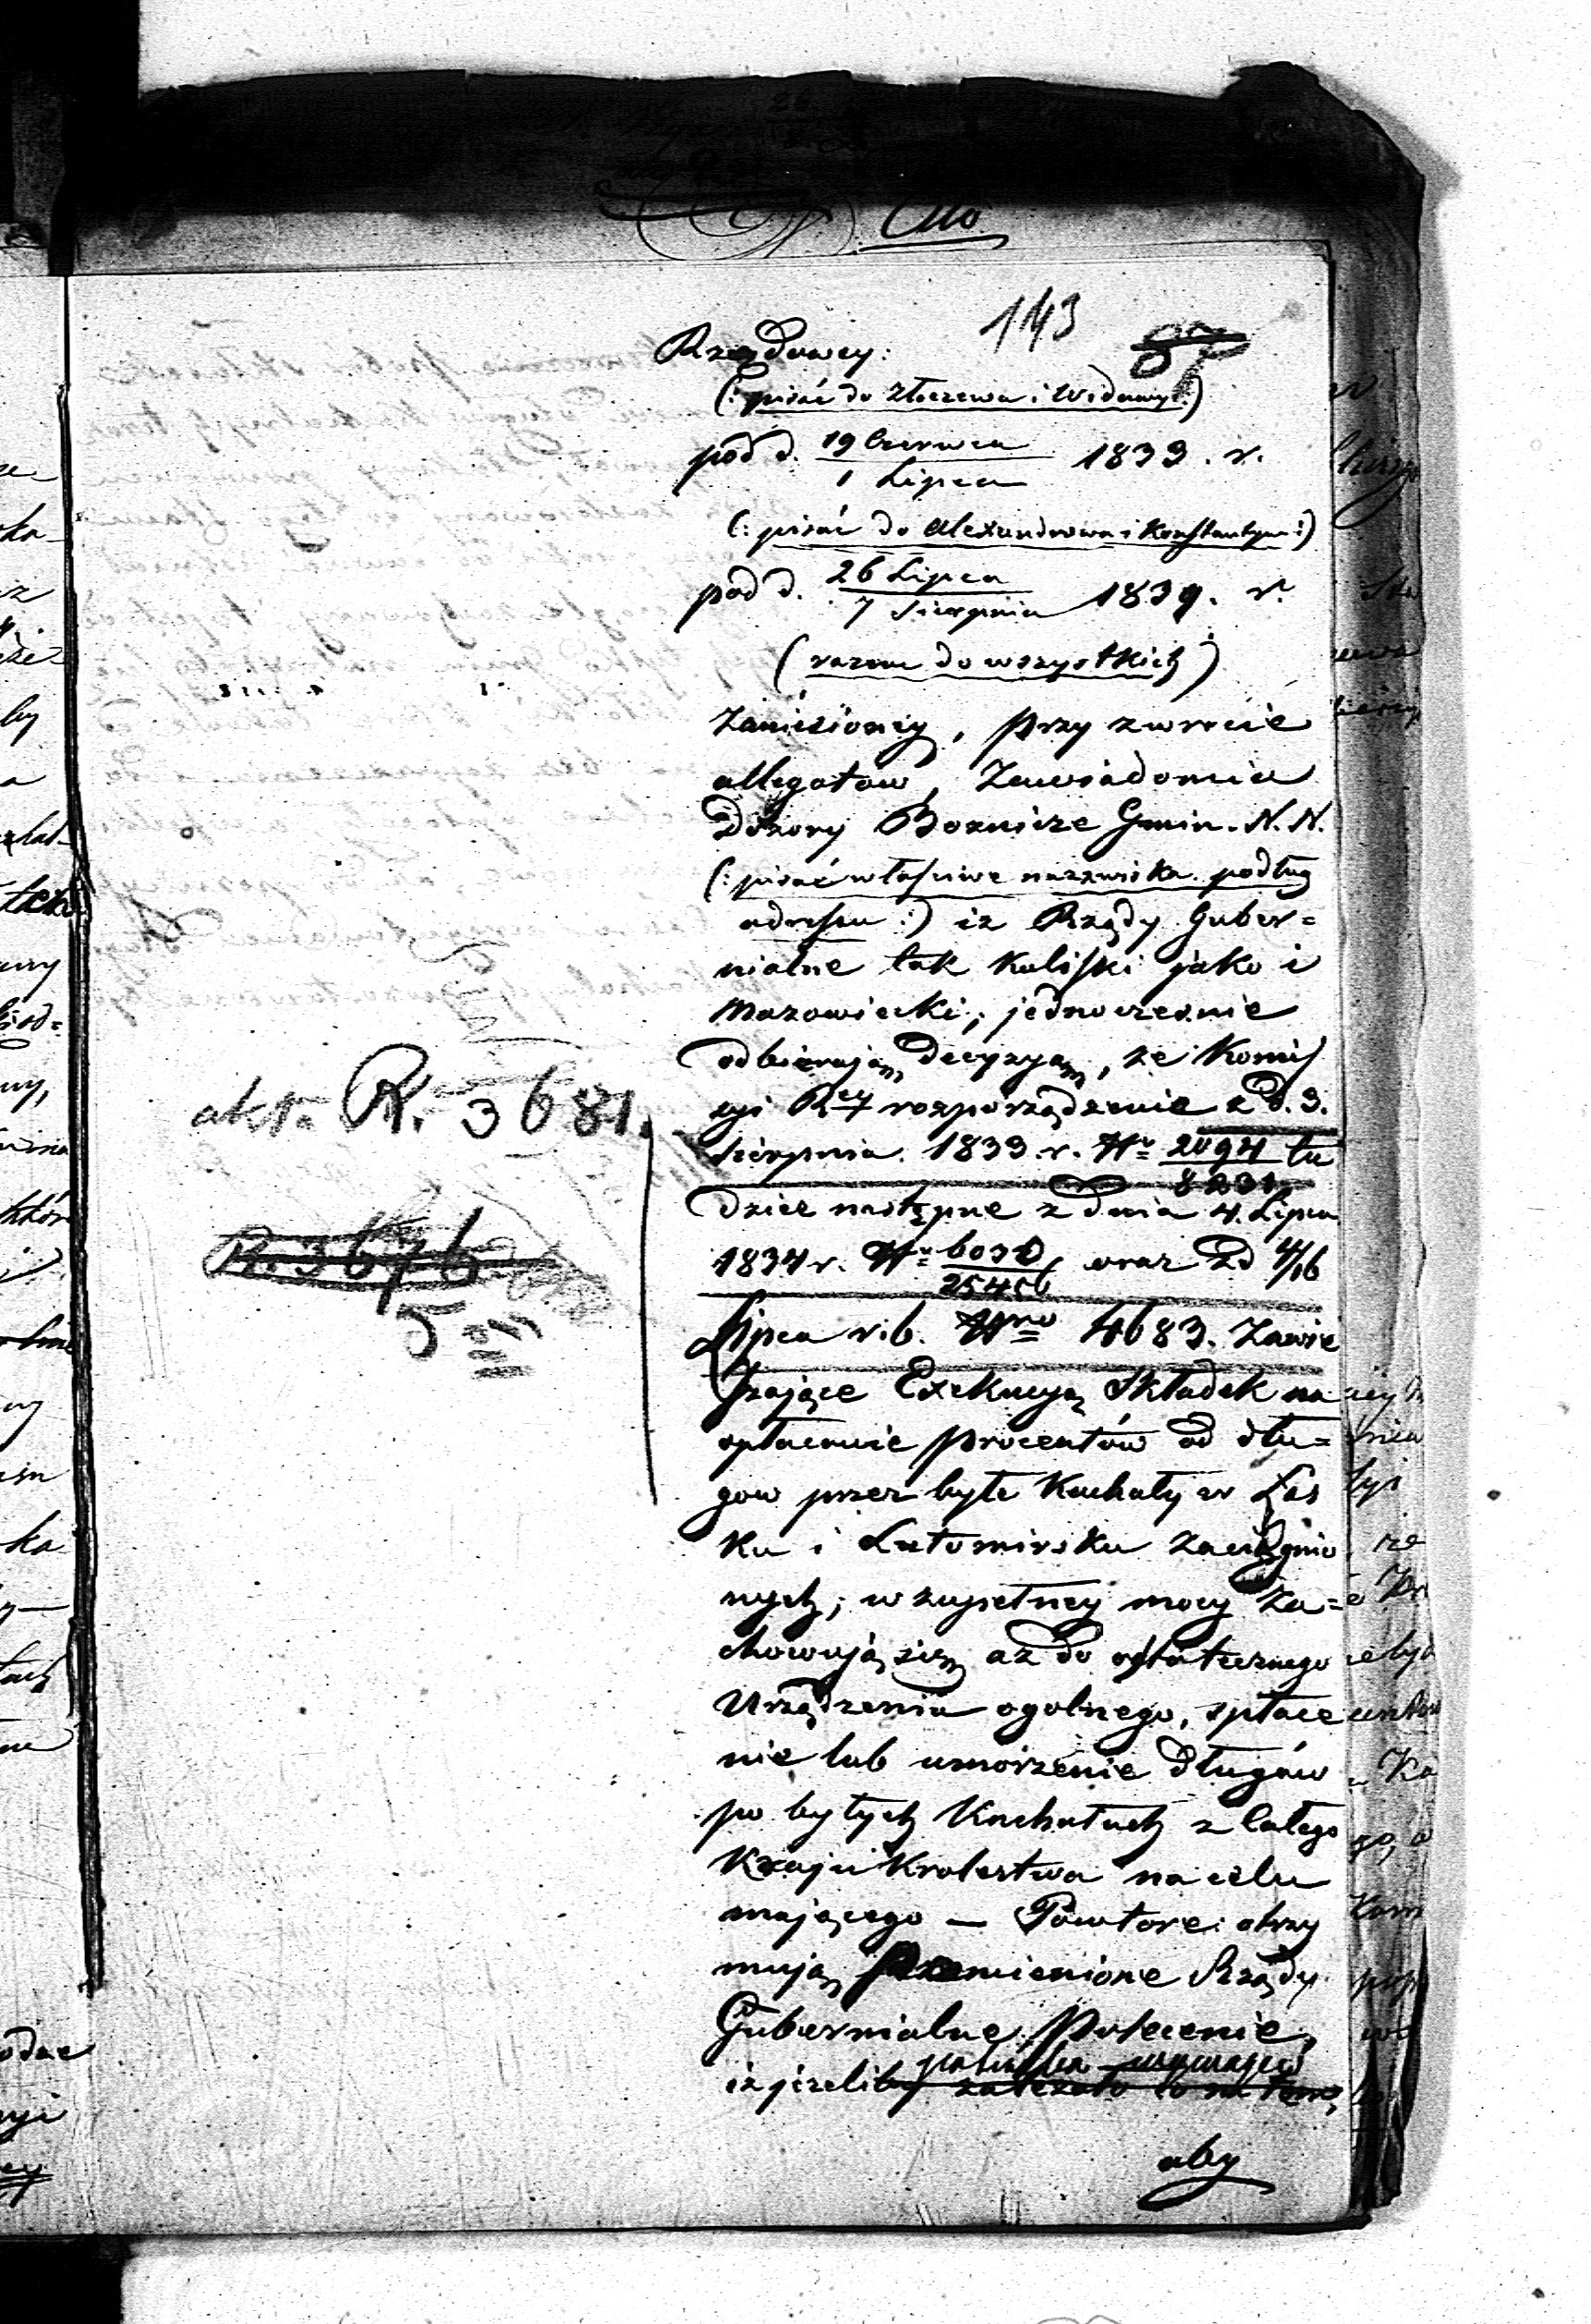 143
87
Rządowey:
(: pisać do Złoczewa i Widawy :)
pod d. 19 Czerwca / 1 Lipca 1839. r.
(: pisać do Alexandrowa i Konstantyn :)
pod d. 26 Lipca / 7 Sierpnia 1839. r.
(razem do wszystkich)
zaniesioney, przy zwrocie
allegatow, Zawiadomia
Dozory Boznicze Gmin. N. N.
(: pisać właściwe nazwiska podług
adressu :) iz Rządy Guber=
nialne tak Kaliski jako i
Mazowiecki, jednocześnie
odbierają decyzyą, ze Komis
syi Rey rozporządzenie z d. 3.
Sierpnia 1833. r. No 2094 / 8231 tu
dziez następne z dnia 4. Lipca
1834 r. No 6030 / 25456 oraz z d 4/16
Lipca r. b. Nro 4683. Zawie
szające Exekucyą Składek na
opłacenie procentów od dłu=
gow przez byłe Kachały w Łas
ku i Lutomirsku zaciągnio
nych, w zupełney mocy za=
chowują się az do ostatecznego
Urządzenia ogolnego, spłace
nie lub umorzenie długów
po byłych Kachałach z całego
Kraju Krolestwa na celu
mającego — Powtore: otrzy
mują Rzemienione Rządy
Gubernialne Polecenie,
iz jezeliby zalezało to na tem,
aby
akta R. 3681.
R. 3676